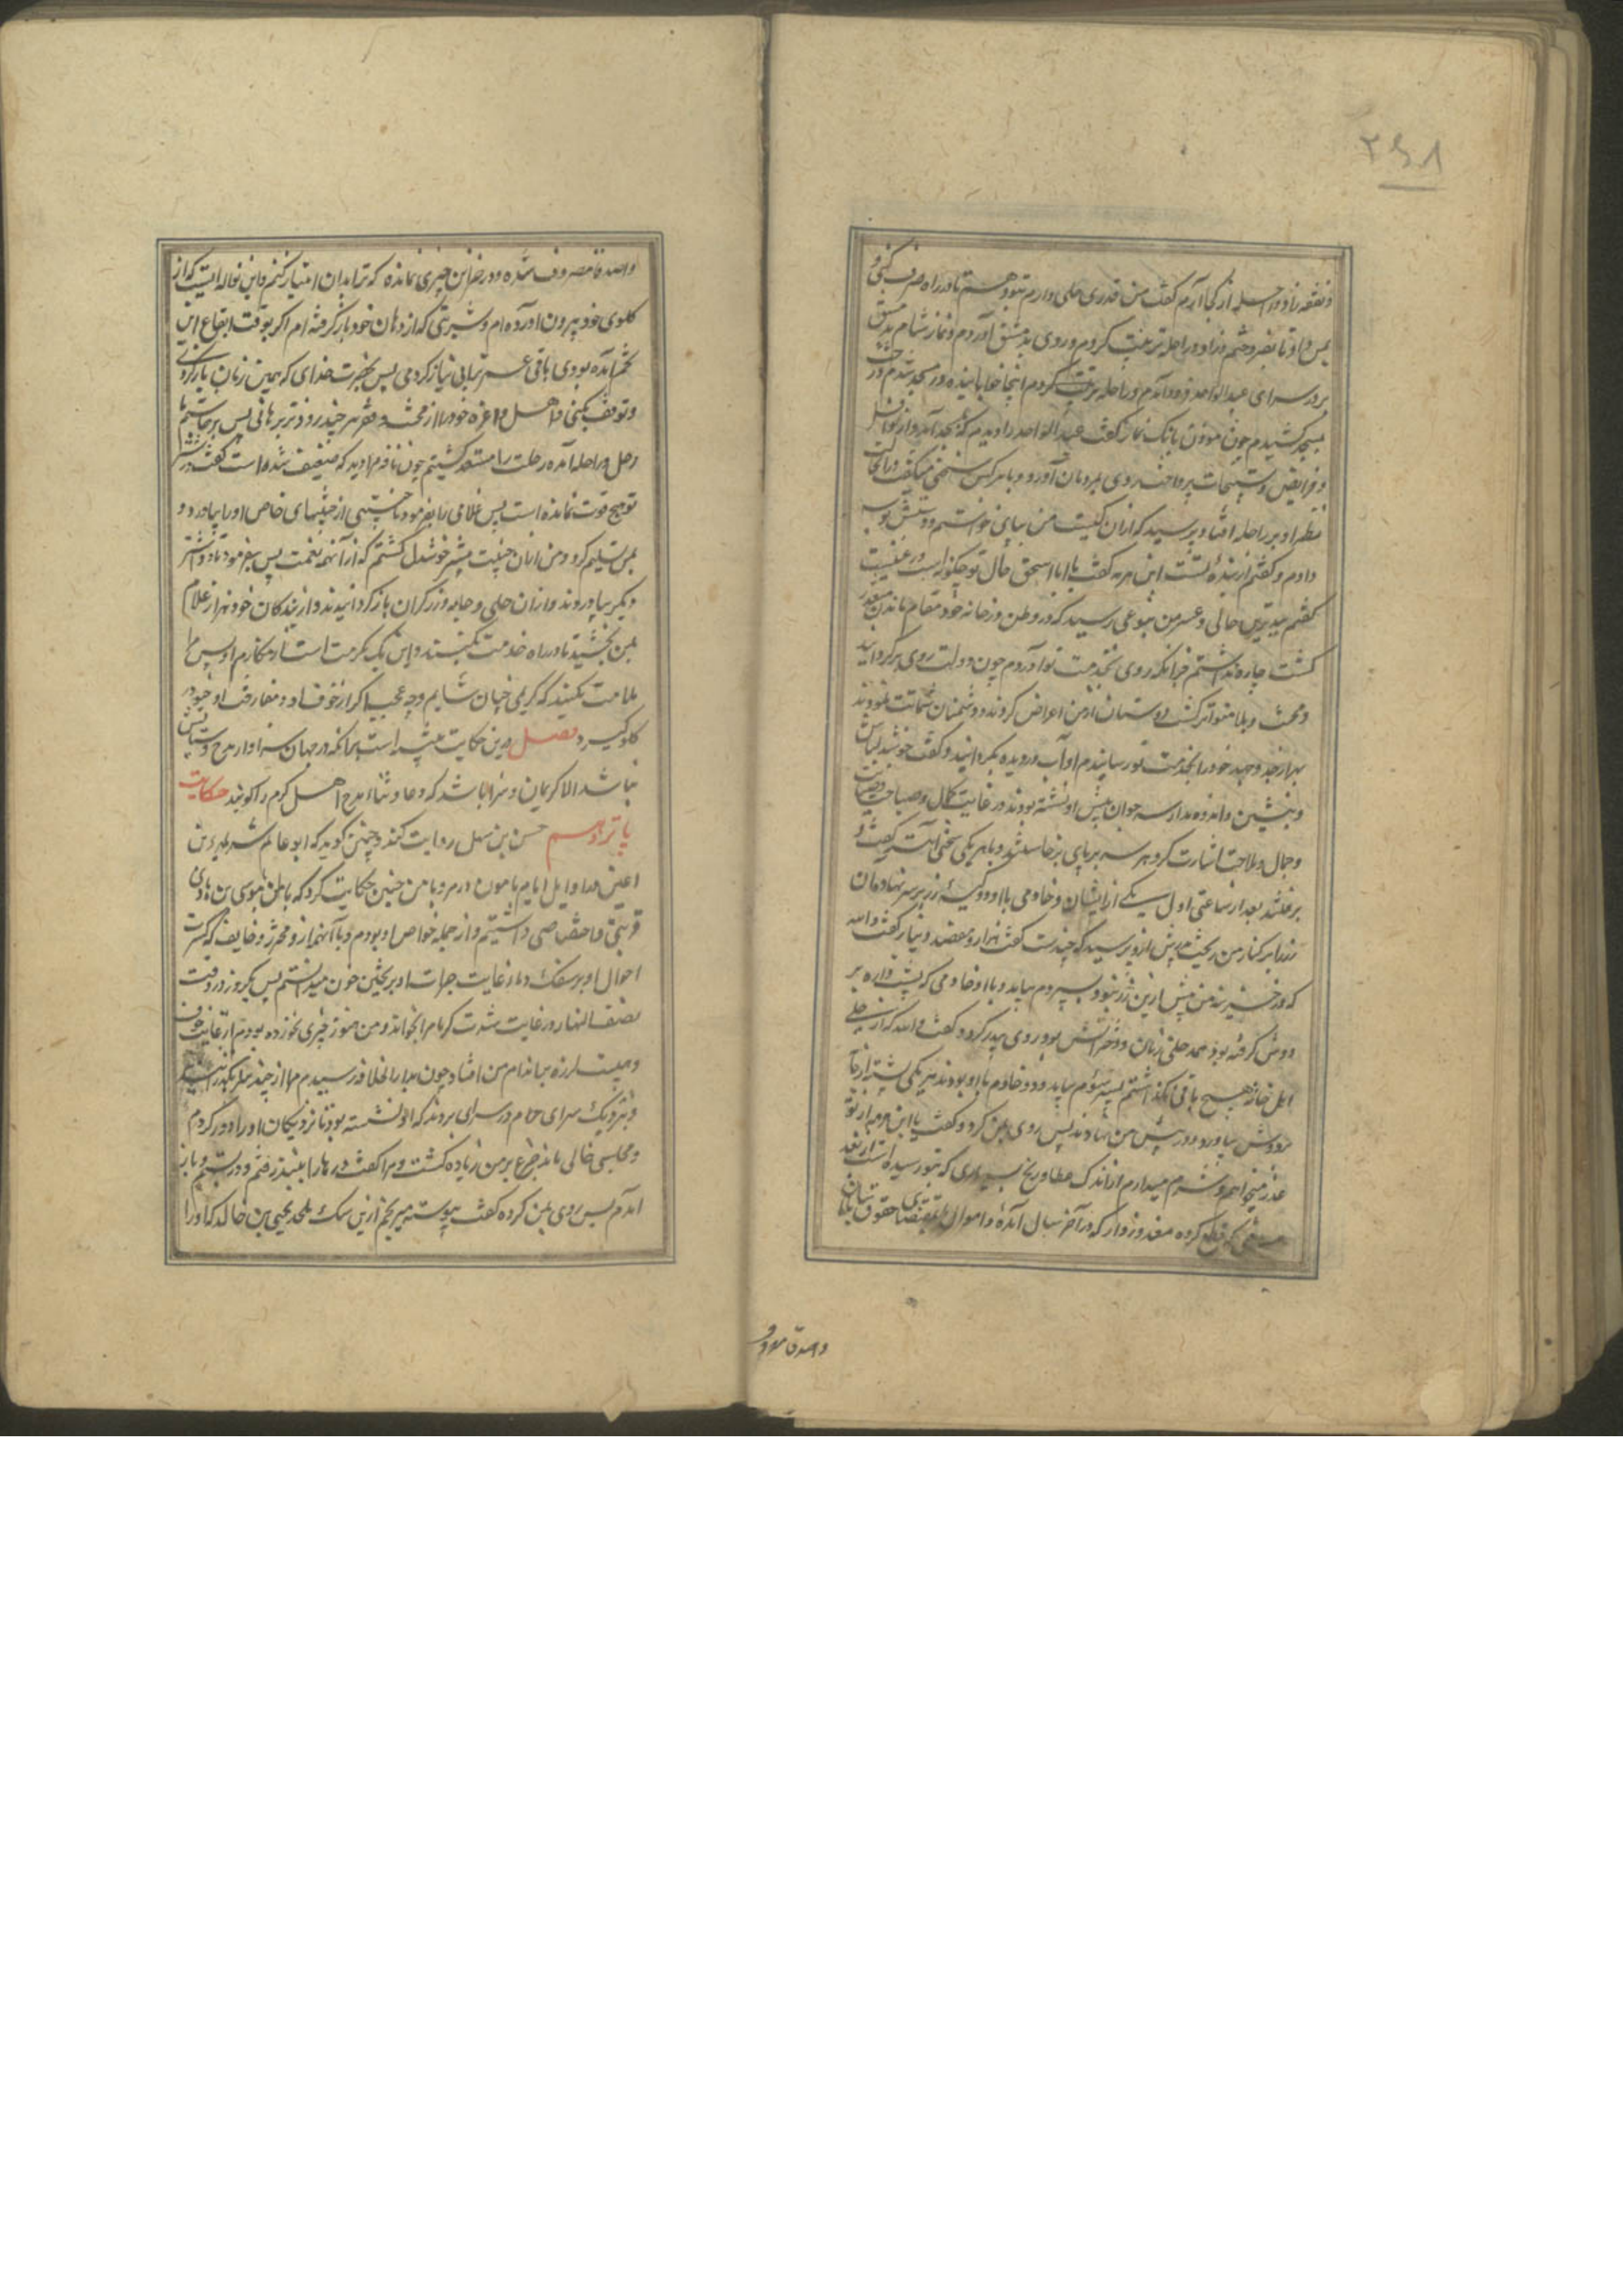 ۲۶۸
و نفقه و زاد و راحله از کجا آرم گفت من قدری حلی دارم بتو دهم تا در راه صرف کنی و
بمن داد تا بفروختم و زاد و راحله ترتیب کردم و روی بدمشق آوردم و نماز شام بدمشق
بر در سرای عبدالواحد فرود آمدم و راحله آنجا خوابانیده در مسجد شدم و رخت
بمسجد کشیدم چون مؤذن بانک نماز گفت عبدالواحد را دیدم که بمسجد آمد و از نوافل
و فرایض و تسبیحات پرداخت روی بمردمان آورد و با هر کس سخنی میگفت در آنحالت
نظر او بر راحله افتاد پرسید که از ان کیست من بپای خواستم و دستش بوسه
دادم و گفتم از بنده تست ابن هرمه گفت یا ابا اسحق حال تو چگونه است در غیبت
گفتم بدترین حالی و عسر من بنوعی رسید که در وطن و خانه خود مقام ماندن متعذر
گشت چاره نداشتم جز آنکه روی بخدمت تو آوردم چون دولت روی برگردانید
و محنت و بلا متواتر گشت دوستان از من اعراض کردند و دشمنان شماتت نمودند
بهزار جد و جهد خود را بخدمت تو رسانیدم او آب در دیده بگردانید و گفت خوشدل باش
و بنشین و اندوه مدار سه جوان پیش او نشسته بودند در غایت کمال و صباحت
و جمال و ملاحت اشارت کرد هر سه بر پای برخاستند و با هر یکی سخنی آهسته گفت و
برفتند بعد از ساعتی اول یکی از ایشان و خادمی با او و کیسه زر بر سر نهاده آن
زر را بر کنار من ریخت پدرش ازو پرسید که چندست گفت هزار و هفصد دینار گفت والله
که در خزینه من بیش ازین زر نبود و پسر دوم بیامد و با او خادمی که پشتواره بر
دوش گرفته بود همه حلی زنان و دخترانش بود روی بپدر کرد و گفت والله که از حلی
اهل خانه هیچ باقی نگذاشتم پسر سیوم بیامد و دو خادم با او بودند هر یکی پشته از جامه
بر دوش بیاورد و در پیش من نهادند پس روی بمن کرد و گفت یا ابن هرمه از تو
عذر میخواهم و شرم میدارم از اندک عطا و رنج بسیاری که بتو رسیده است از بعد
مسافتی که قطع کرده معذور دار که در آخر سال آمدۀ و اموال بمقتضای حقوق
والله قا مصروف
والله قا مصروف شده و در خزاین چیزی نمانده که ترا بدان امتیاز کنم و این نواله ایست که از
گلوی خود بیرون آورده ام و شربتی که از دهان خود باز گرفته ام اگر بوقت ارتفاع این
تخم آمده بودی باقی عمر ترا بی نیاز کردمی پس بحضرت خدای که همین زمان بازگردی
و توقف نکنی و اهل و اعزه خود را از محنت و فقر هر چند زودتر برهانی پس برخاستم تا
رحل و راحله آمده رحلت را مستعد گشتم چون ناقه م را دید که ضعیف شده است گفت در شتر
تو هیچ قوت نمانده است پس غلامی را بفرمود تا بختیی از بختیهای خاص او را بیاورد و
بمن تسلیم کرد و من از ان بختی بیشتر خوشدل گشتم که از آنهمه نعمت پس بفرمود تا دو اشتر
دیگر بیاوردند و از ان حلی و جامه و زر گران بار گردانیدند و از بندگان خود هزار غلام
بمن بخشید تا در راه خدمت بکنند و این یک مکرمت است از مکارم او پس مرا
ملامت نکنید که کریمی چنان شاید و چه عجب اگر از خوف او و مفارقت او خون در
گلو گیرد فصل و این حکایت منبه است بر آنکه در جهان سزاوار مدح و ستایش
نباشد الا کریمان و سزا باشد که دعا و ثنا و مدح اهل کرم را گویند حکایت
یازدهم حسن بن سهل روایت کند و چنین گوید که ابو عالم شه هرثمه بن
اعین مرا در اوایل ایام مامون در مرو با من چنین حکایت کرد که با من موسی بن هادی
قربتی و اختصاصی داشتم و از جمله خواص او بودم و با آنهم ازو محترز و خایف که کثرت
احوال او بر سفک دماء و غایت جرات او بر ریختن خون میدانستم پس یکروز در وقت
نصف النهار در غایت شدت گرما مرا بخواند و من هنوز چیزی نخورده بودم از غایت خوف
و هیبت لرزه بر اندام من افتاد چون بدار الخلافه رسیدم مرا از چند سرای بگذرانیدند
و بنزدیک سرای حرم در سرای بردند که او نشسته بود تا نزدیکان او را دور کردم
و مجلس خالی ماند جزع بر من زیاده گشت و مرا گفت درها را ببند رفتم و در ببستم و باز
آمدم پس روی بمن کرده گفت پیوسته میرنجم ازین سگ ملحد یحیی بن خالد که او را